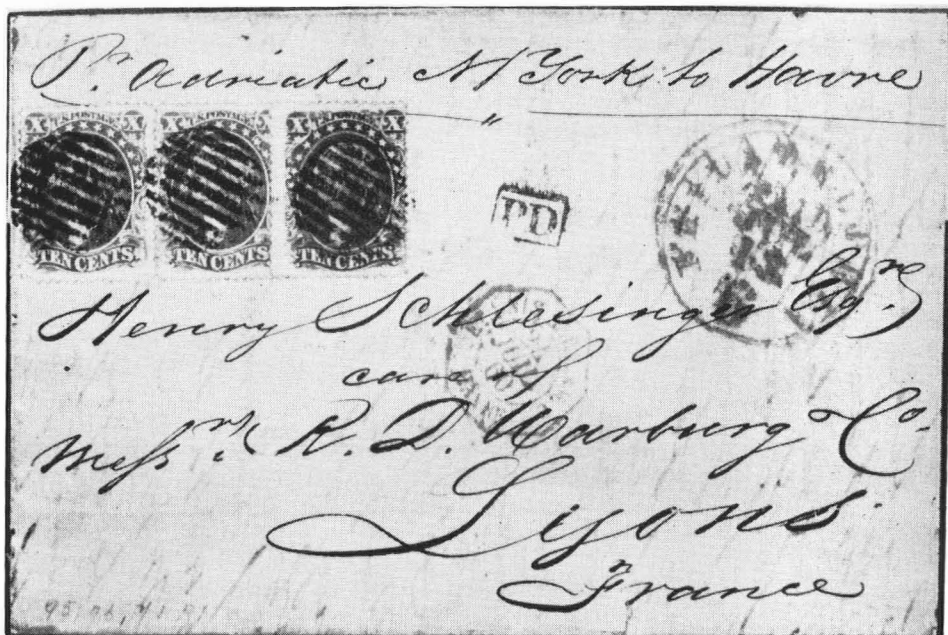 Pr. Adriatic N York to Havre
"
X U.S. POSTAGE X X U.S. POSTAGE X X U.S. POSTAGE X
TEN CENTS TEN CENTS TEN CENTS
PD
NEW
Henry Schlesinger Esqre
care of
Messrs. R. D. Warburg & Co.
Lyons.
France